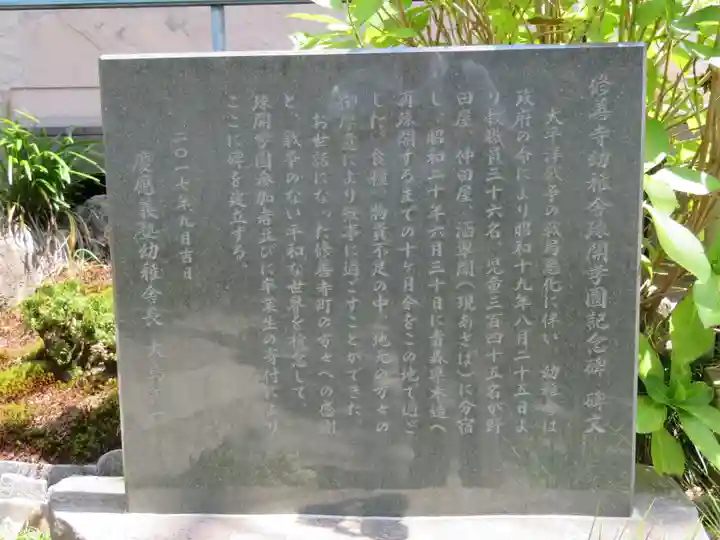 修善寺幼稚舎疎開学園記念碑 碑文
太平洋戦争の戦局悪化に伴い、幼稚舎は
政府の命により昭和十九年八月二十五日よ
り教職員三十六名、児童三百四十五名が野
田屋、仲田屋、涵翠閣(現あさば)に分宿
し、昭和二十年六月三十日に青森県木造へ
再疎開するまでの十ヶ月余をこの地で過ご
した。食糧、物資不足の中、地元の方々の
御厚意により無事に過ごすことができた。
お世話になった修善寺町の方々への感謝
と、戦争のない平和な世界を祈念して、
疎開学園参加者並びに卒業生の寄付により
ここに碑を建立する。
二〇一七年九月吉日
慶應義塾幼稚舎長 大